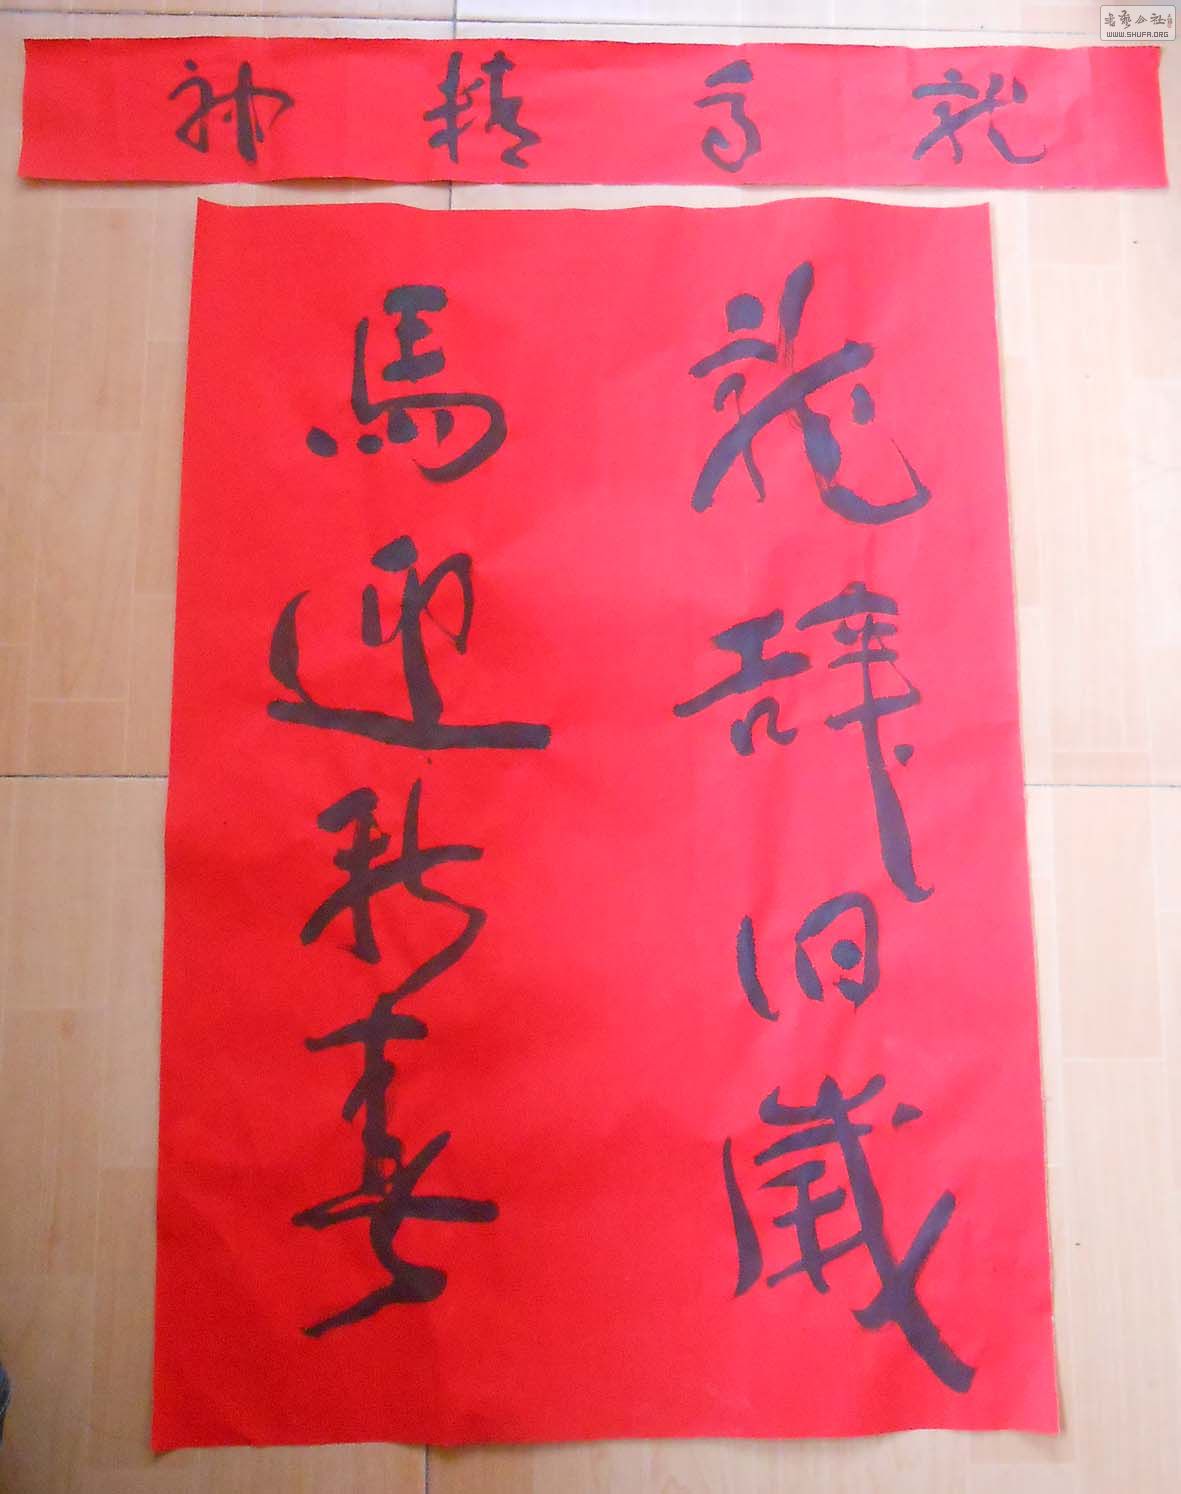 龍馬精神
龍辞旧歲
馬迎新春
书艺公社
WWW.SHUFA.ORG